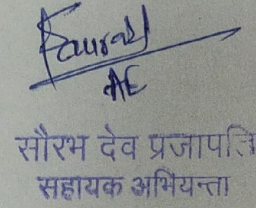 Saurabh
AE
सौरभ देव प्रजापति
सहायक अभियन्ता